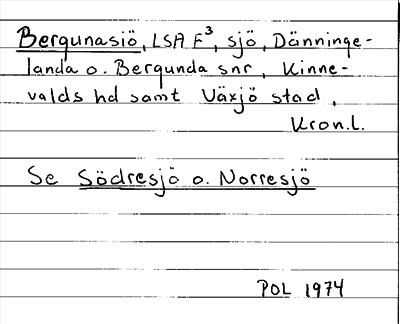 Bergunasjö, LSA F³, sjö, Dänninge-
landa o. Bergunda snr, Kinne-
valds hd samt Växjö stad,
Kron.l.
Se Södresjö o. Norresjö
POL 1974